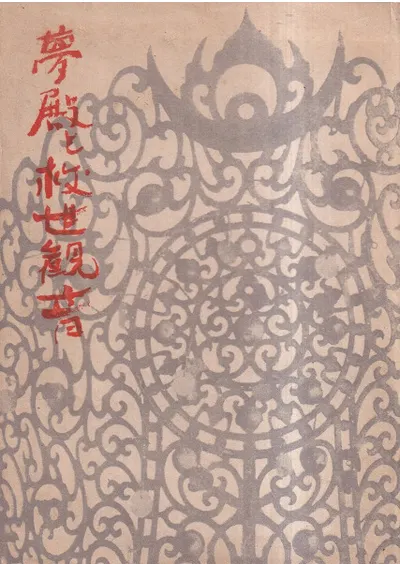 夢殿と救世観音